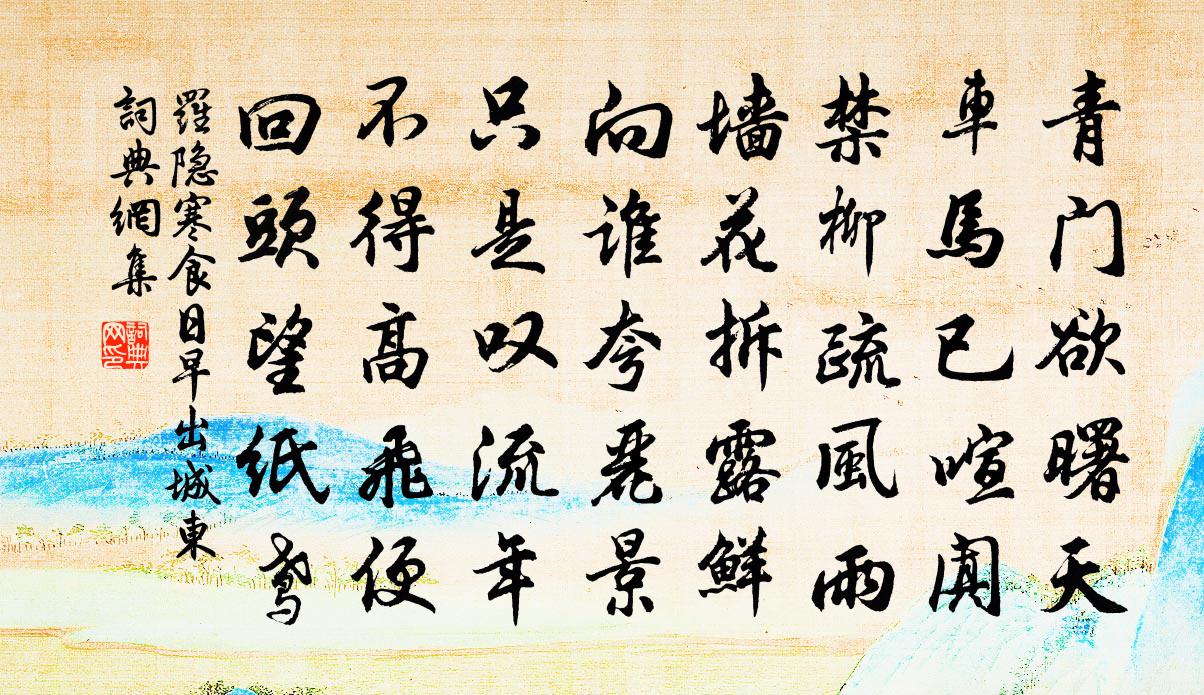 青门欲曙天
車馬已喧闐
禁柳疏風雨
墙花拆露鮮
向谁夸麗景
只是叹流年
不得高飛便
回頭望紙鸢
羅隐寒食日早出城東
詞典網集
詞典
网印